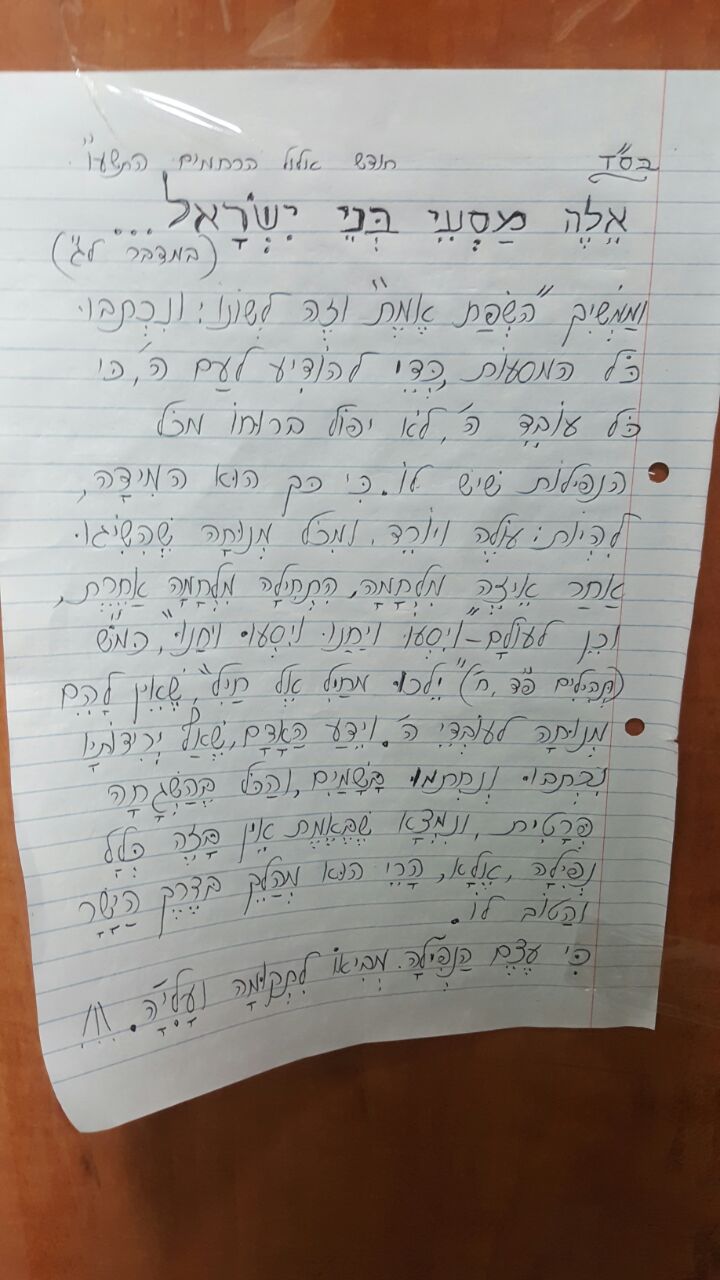 בס"ד חודש אלול הרחמים התשע"ו
אֵלֶּה מַסְעֵי בְּנֵי יִשְׂרָאֵל...
(במדבר ל"ג)
וּמַמְשִׁיךְ "הַשְּׂפַת אֱמֶת" וְזֶה לְשׁוֹנוֹ: וְנִכְתְּבוּ
כׇּל המסעות, כְּדֵי להוֹדִיעַ לעַם ה', כִּי
כׇּל עוֹבֵד ה', לֹא יפּוֹל ברוּחוֹ מכׇּל
הנפִילוֹת שֶׁיֵּשׁ לוֹ. כִּי כך הוּא המִידָּה,
לִהְיוֹת: עוֹלֶה ויוֹרֵד. וּמִכׇּל מְנוּחָה שֶׁהִשִּׂיגוּ
אַחַר אֵיזֶה מִלְחָמָה, הִתְחִילָה מִלְחָמָה אַחֶרֶת,
וכֵן לעוֹלָם – "ויִסְעוּ ויַחֲנוּ ויִסְעוּ ויַחֲנוּ", כמ"ש
(תְּהִילִים פ"ד, ח') "יֵלְכוּ מחַיִל אֶל חַיִל", שֶׁאֵין לָהֶם
מְנוּחָה לעוֹבְדֵי ה'. וְיֵדַע הָאָדָם, שֶׁאֵלּוּ יְרִידוֹתָיו
נִכְתְּבוּ וְנֶחְתְּמוּ בַּשָּׁמַיִם, והַכֹּל בְּהַשְׁגָּחָה
פְּרָטִית, ונִמְצָא שֶׁבֶּאֱמֶת אֵין בָּזֶה כְּלָל
נְפִילָה, אֶלָּא, הֲרֵי הוּא מְהַלֵּךְ בדֶרֶךְ הַיָּשָׁר
והַטּוֹב לוֹ.
כִּי עֶצֶם הַנְּפִילָה מְבִיאוֹ לִתְקוּמָה וַעֲלִיָּה.